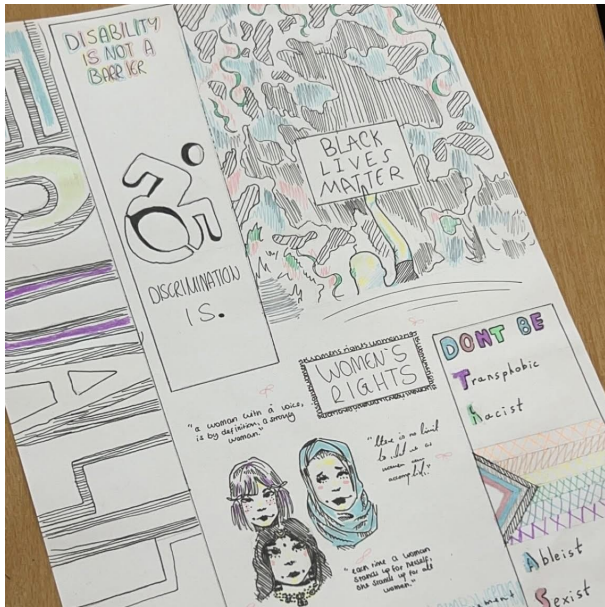 EQUALIT
DISABILITY
IS NOT A
BARRIER
DISCRIMINATION
IS.
BLACK
LIVES
MATTER
womens rights womens
WOMEN'S
RIGHTS
"a woman with a voice,
is by definition, a strong
woman."
"there is no limit
to what we as
women can
accomplish."
"each time a woman
stands up for herself,
she stands up for all
women."
DONT BE
Transphobic
Racist
Ableist
Sexist